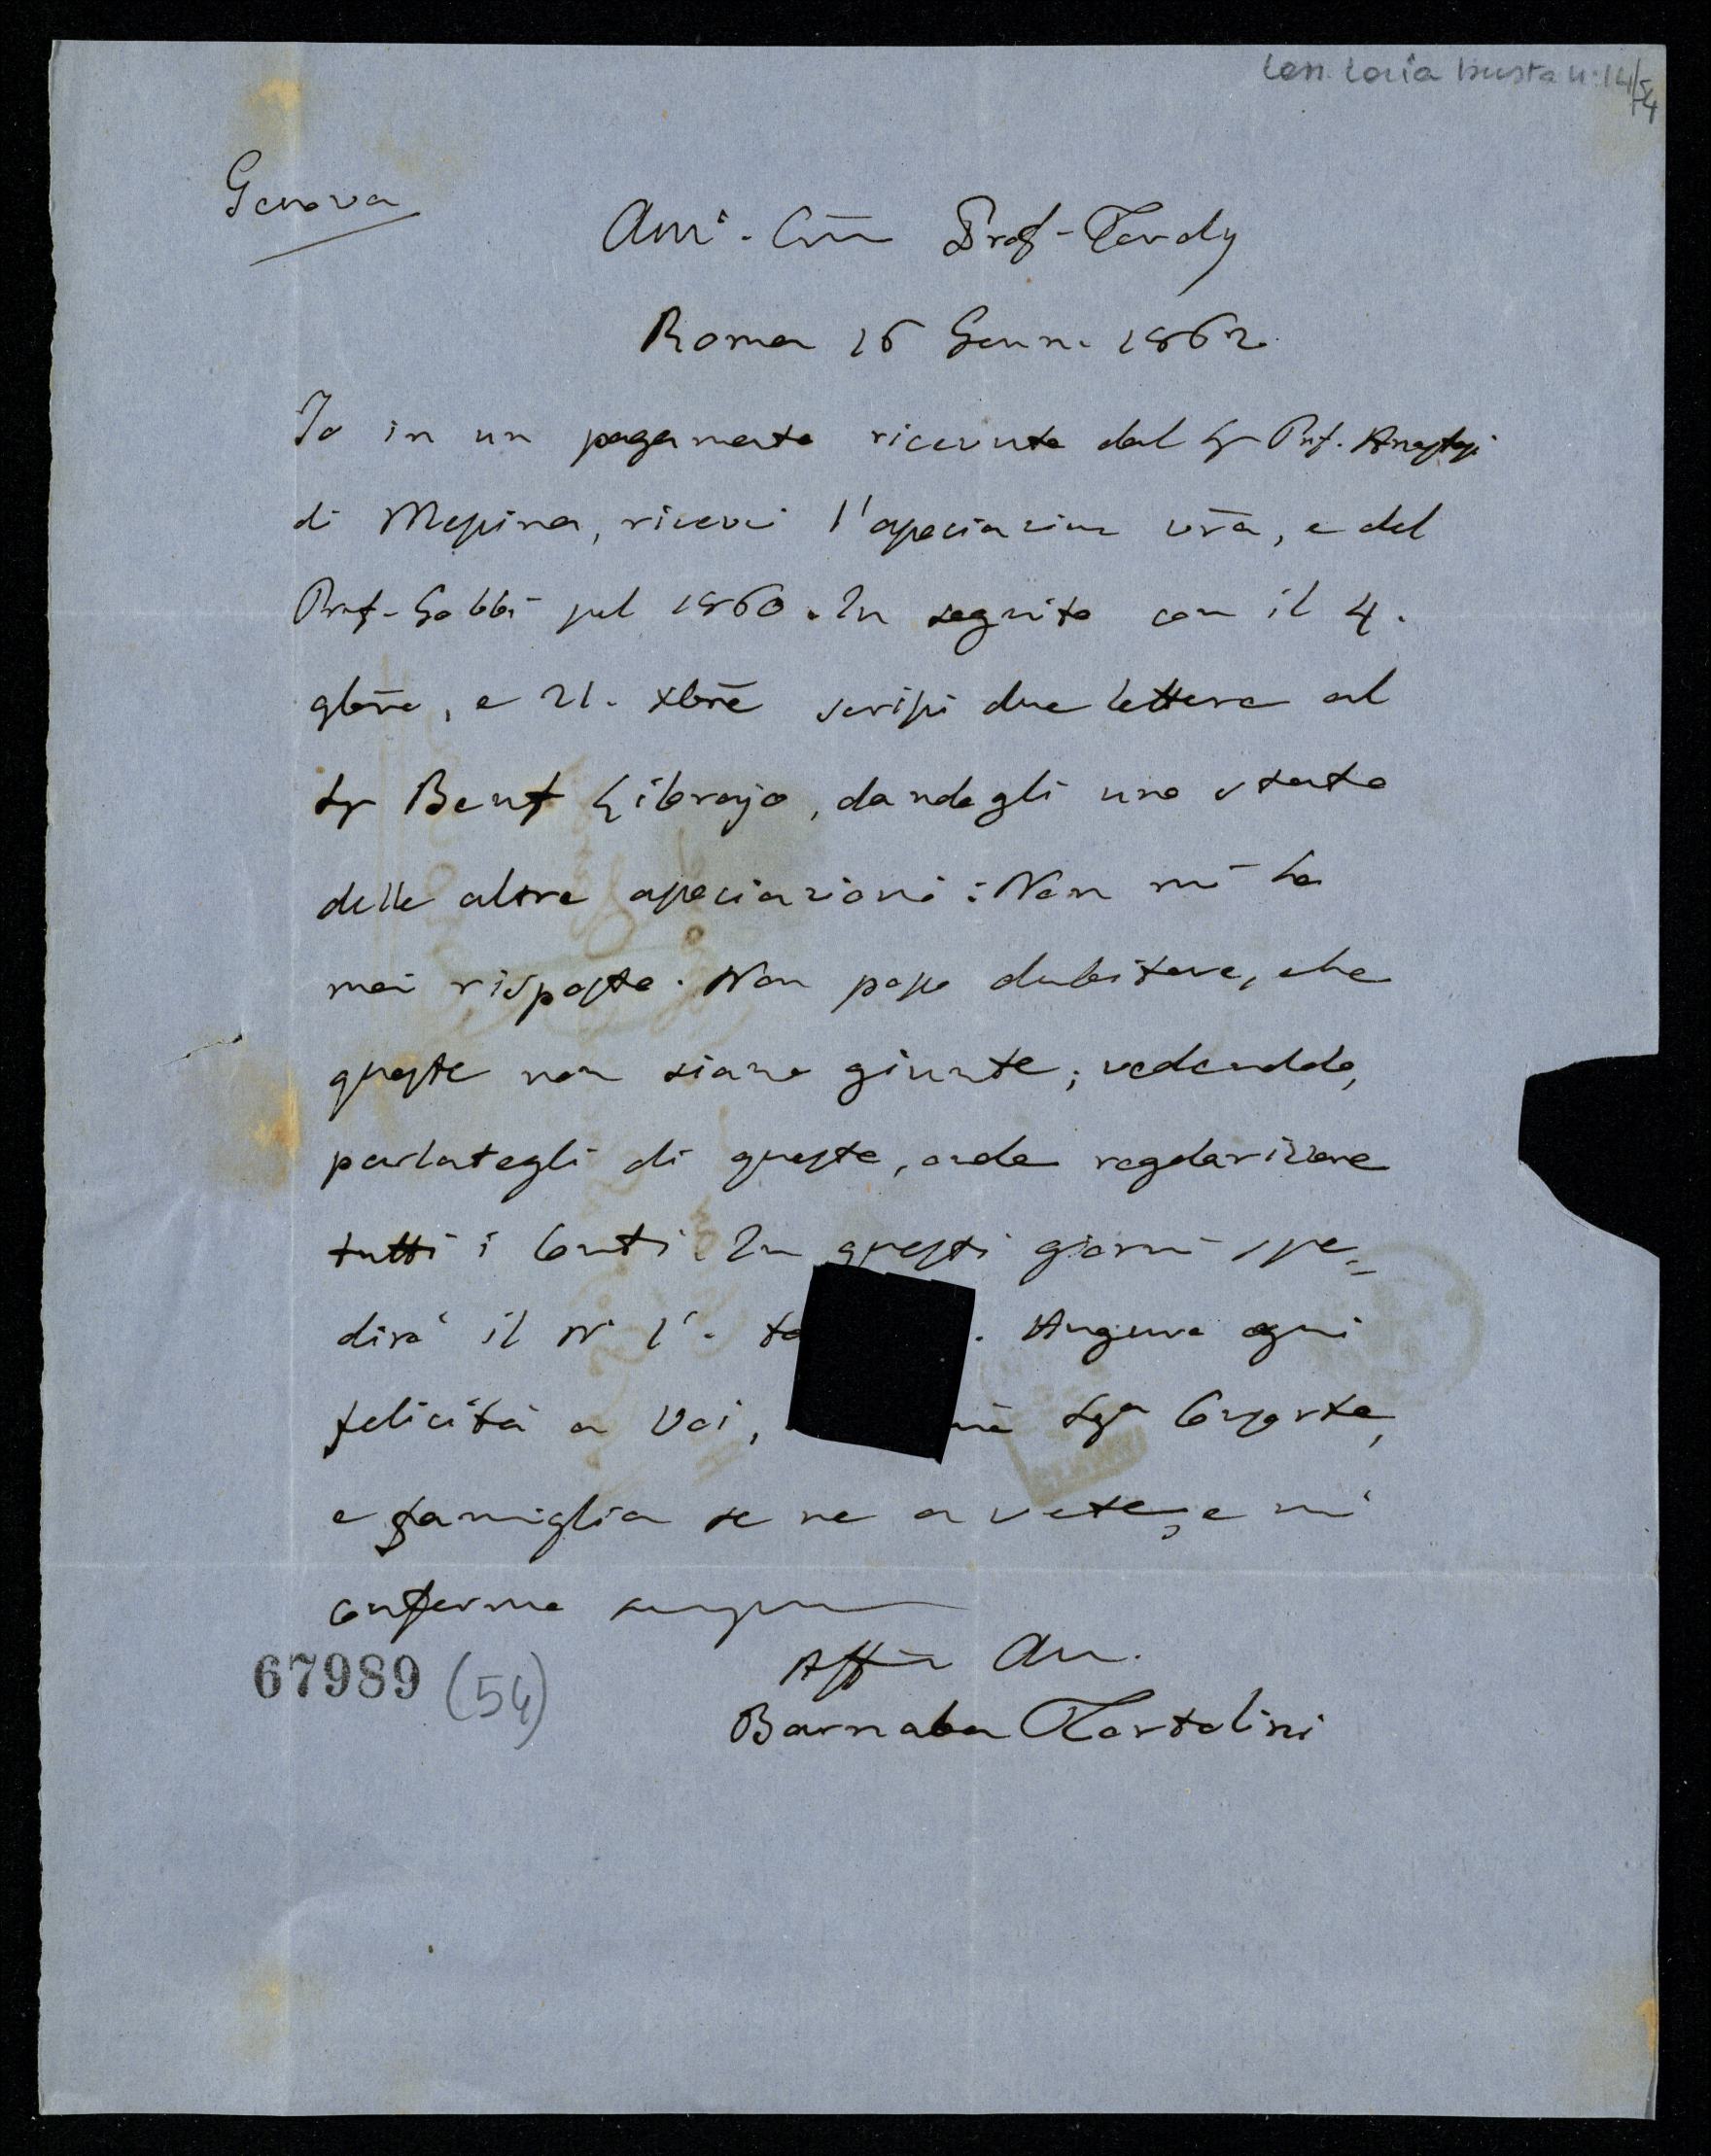 Cass. Loria busta n: 14/54
Genova
Ami. Cm̄o Prof. Tardy
Roma 16 Genn. 1862
Io in un pagamento ricevuto dal Sr Prof. Anastasi
di Messina, ricevei l'associazione vrā, e del
Prof. Gabbi pel 1860. In seguito con il 4.
9bre, e 21. Xbre scrissi due lettere al
Sr Beuf Librajo, dandogli uno stato
delle altre associazioni: Non mi ha
mai risposto. Non posso dubitare, che
queste non siano giunte; vedendolo,
parlategli di questo, onde regolarizzare
tutti i Conti. In questi giorni spe=
dirò il N° 1°. to . Auguro ogni
felicità a Voi, mā Sga Consorte,
e famiglia se ne avete, e mi
confermo sempre
Affmo Am.
Barnaba Tortolini
67989 (54)